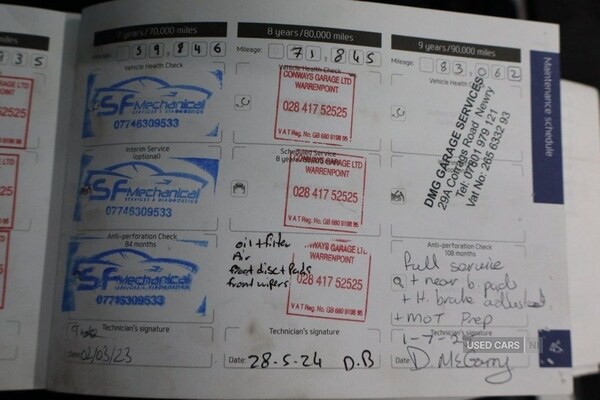 7 years/70,000 miles
Mileage: 59,846
Vehicle Health Check
SF Mechanical
SERVICES & DIAGNOSTICS
07746309533
Interim Service
(optional)
SF Mechanical
SERVICES & DIAGNOSTICS
07746309533
Anti-perforation Check
84 months
SF Mechanical
SERVICES & DIAGNOSTICS
07746309533
Technician's signature
Date: 02/03/23
8 years/80,000 miles
Mileage: 71,845
Vehicle Health Check
CONWAYS GARAGE LTD
WARRENPOINT
028 417 52525
V A T Reg. No. GB 680 9198 95
Scheduled Service
CONWAYS GARAGE LTD
WARRENPOINT
028 417 52525
V A T Reg. No. GB 680 9198 95
oil + filter
Air
front disc + Pads
front wipers
WAYS GARAGE LTD
WARRENPOINT
028 417 52525
V A T Reg. No. GB 680 9198 95
Technician's signature
Date: 28-5-24 D.B
9 years/90,000 miles
Mileage: 83,062
Vehicle Health
DMG GARAGE SERVICES
29A Corrags Road, Newry
Tel: 07801 979 121
Vat No: 265 6332 93
Anti-perforation Check
108 months
full service
+ rear b. pads
+ H. brake adjusted
+ MOT Prep
Technician's signature
Date:
D. McGarry
Maintenance schedule
45
USED CARS NI